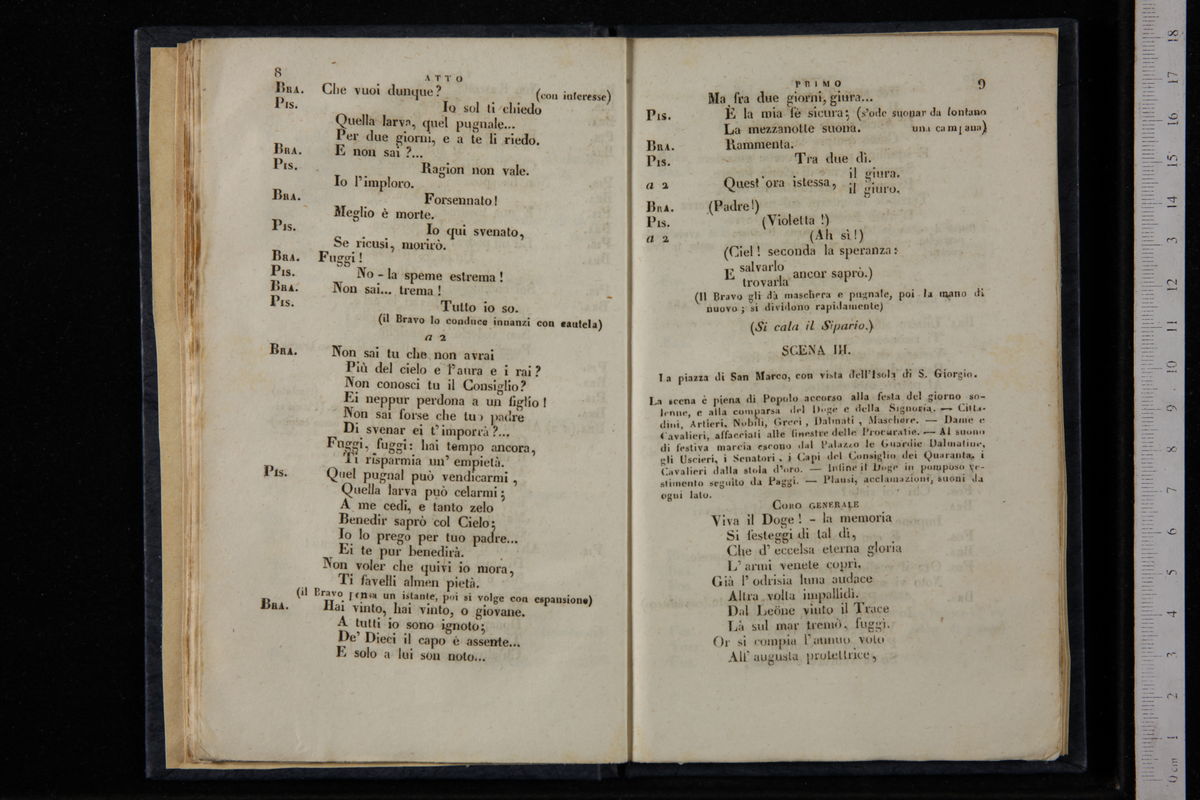 8
ATTO
BRA. Che vuoi dunque? (con interesse)
PIS. Io sol ti chiedo
Quella larva, quel pugnale...
Per due giorni, e a te li riedo.
BRA. E non sai?...
PIS. Ragion non vale.
Io l'imploro.
BRA. Forsennato!
Meglio è morte.
PIS. Io qui svenato,
Se ricusi, morirò.
BRA. Fuggi!
PIS. No - la speme estrema!
BRA. Non sai... trema!
PIS. Tutto io so.
(il Bravo lo conduce innanzi con cautela)
a 2
BRA. Non sai tu che non avrai
Più del cielo e l'aura e i rai?
Non conosci tu il Consiglio?
Ei neppur perdona a un figlio!
Non sai forse che tuo padre
Di svenar ei t'imporrà?...
Fuggi, fuggi: hai tempo ancora,
Ti risparmia un' empietà.
PIS. Quel pugnal può vendicarmi,
Quella larva può celarmi;
A me cedi, e tanto zelo
Benedir saprò col Cielo;
Io lo prego per tuo padre...
Ei te pur benedirà.
Non voler che quivi io mora,
Ti favelli almen pietà.
(il Bravo pensa un istante, poi si volge con espansione)
BRA. Hai vinto, hai vinto, o giovane.
A tutti io sono ignoto;
De' Dieci il capo è assente...
E solo a lui son noto...
PRIMO
9
Ma fra due giorni, giura...
PIS. È la mia fè sicura; (s'ode suonar da lontano
La mezzanotte suona. una campana)
BRA. Rammenta.
PIS. Tra due dì.
il giura.
a 2 Quest'ora istessa,
il giuro.
BRA. (Padre!)
PIS. (Violetta!)
a 2 (Ah sì!)
(Ciel! seconda la speranza:
E salvarlo ancor saprò.)
trovarla
(Il Bravo gli dà maschera e pugnale, poi la mano di
nuovo; si dividono rapidamente)
(Si cala il Sipario.)
SCENA III.
La piazza di San Marco, con vista dell'Isola di S. Giorgio.
La scena è piena di Popolo accorso alla festa del giorno so-
lenne, e alla comparsa del Doge e della Signoria. — Citta-
dini, Artieri, Nobili, Greci, Dalmati, Maschere. — Dame e
Cavalieri, affacciati alle finestre delle Procuratie. — Al suono
di festiva marcia escono dal Palazzo le Guardie Dalmatine,
gli Uscieri, i Senatori, i Capi del Consiglio dei Quaranta, i
Cavalieri dalla stola d'oro. — Infine il Doge in pomposo ve-
stimento seguito da Paggi. — Plausi, acclamazioni, suoni da
ogni lato.
CORO GENERALE
Viva il Doge! - la memoria
Si festeggi di tal dì,
Che d'eccelsa eterna gloria
L'armi venete coprì.
Già l'odrisia luna audace
Altra volta impallidì.
Dal Leöne vinto il Trace
Là sul mar tremò, fuggì.
Or si compia l'annuo voto
All'augusta protettrice,
0 cm 1 2 3 4 5 6 7 8 9 10 11 12 13 14 15 16 17 18